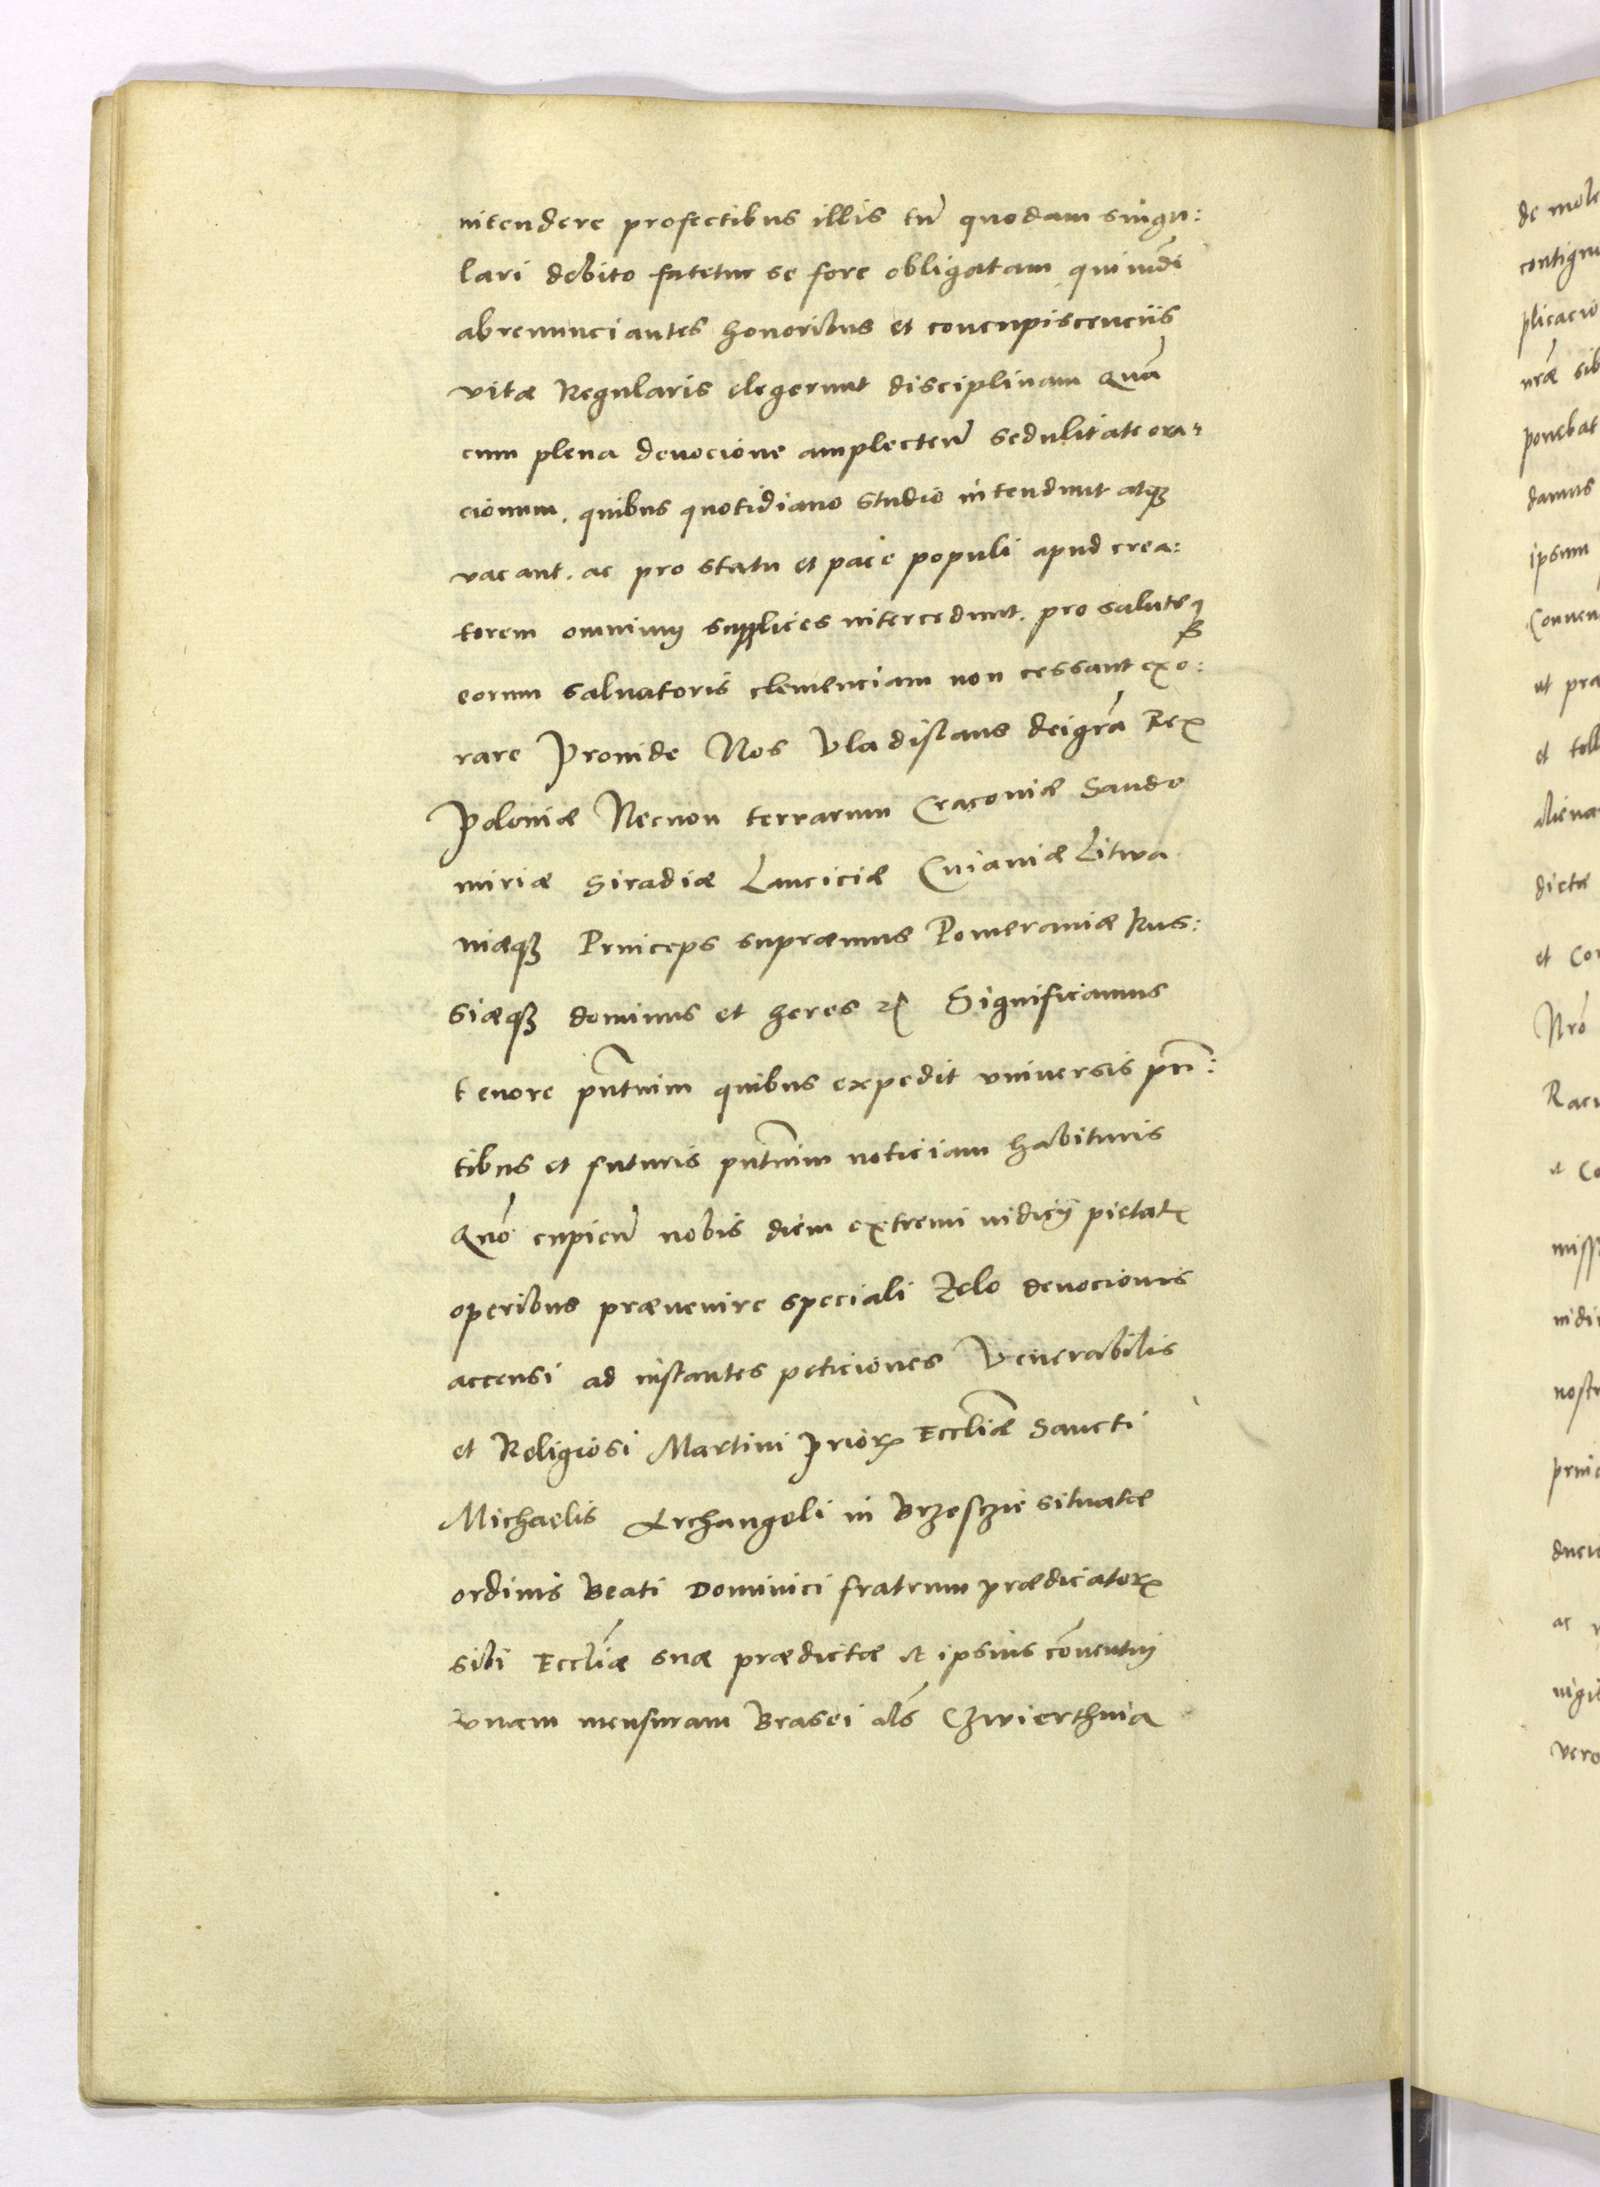 intendere profectibus illis tn̄ quodam singu:
lari debito fatetur se fore obligatam qui mūdi
abrenunciantes honoribus et concupiscenciis
vitæ Regularis elegerunt disciplinam Quā
cum plena deuocione amplecten̄ sedulitate ora:
cionum. quibus quotidiano studio intendunt atqȝ
vacant. ac pro statu et pace populi apud crea:
torem omnium supplices intercedunt. pro saluteqȝ
eorum saluatoris clemenciam non cessant exo:
rare Proinde Nos Vladislaus dei grā Rex
Poloniæ Necnon terrarum Cracouiæ Sando
miriæ Siradiæ Lanciciæ Cuiauiæ Litwa
niæqȝ Princeps supræmus Pomeraniæ Rus:
siæqȝ dominus et heres ꝛc Significamus
tenore pn̄tium quibus expedit vniversis pn̄:
tibus et futuris pn̄tium noticiam habituris
Quō cupien̄ nobis diem extremi iudicij pietatꝭ
operibus præuenire speciali Zelo deuocionis
accensi ad instantes peticiones Venerabilis
et Religiosi Martini Priorꝭ Eccliæ Sancti
Michaelis Archangeli in Brzesczie situatæ
ordinis Beati Dominici fratrum prædicatorꝝ
sibi Eccliæ suæ prædictæ et ipsius cōuentui
vnam mensuram Brasei als Czwierthnia

de mole
contigu
plicacio
nræ sib
ponebat
damus
ipsum
Conuen
ut præ
et toll
aliena
dictæ
et Con
Nro
Racu
et Co
miss
iudi
nostr
princ
ducu
ac
vigi
vero